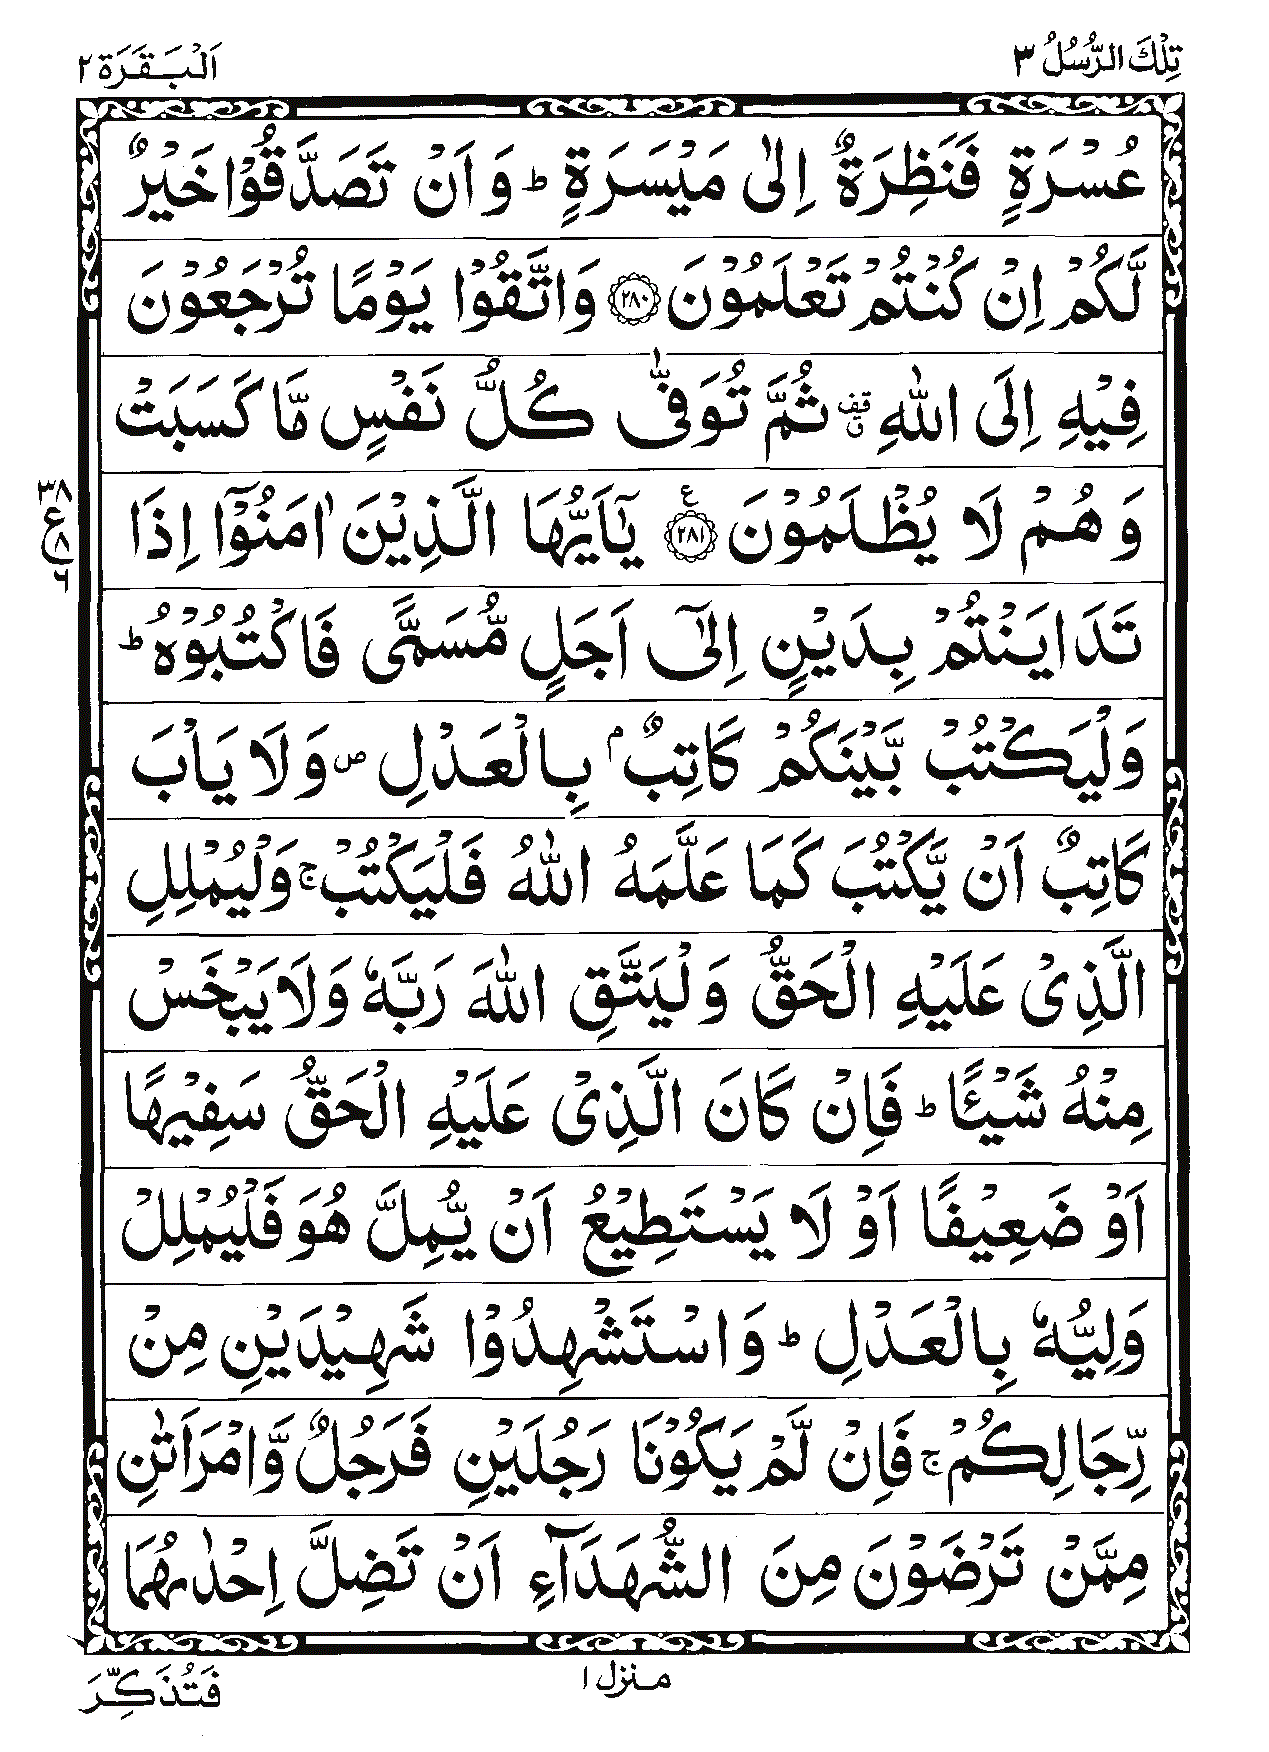 تِلْكَ الرُّسُلُ ٣
اَلْبَقَرَة ٢
عُسْرَةٍ فَنَظِرَةٌ اِلٰى مَيْسَرَةٍ ؕ وَ اَنْ تَصَدَّقُوْا خَيْرٌ
لَّكُمْ اِنْ كُنْتُمْ تَعْلَمُوْنَ ۝٢٨٠ وَاتَّقُوْا يَوْمًا تُرْجَعُوْنَ
فِيْهِ اِلَى اللّٰهِ ۗ قف ثُمَّ تُوَفّٰى كُلُّ نَفْسٍ مَّا كَسَبَتْ
وَ هُمْ لَا يُظْلَمُوْنَ ۝٢٨١ ع يٰۤاَيُّهَا الَّذِيْنَ اٰمَنُوْۤا اِذَا
٣٨
ع
٨
٦
تَدَايَنْتُمْ بِدَيْنٍ اِلٰۤى اَجَلٍ مُّسَمًّى فَاكْتُبُوْهُ ؕ
وَلْيَكْتُبْ بَّيْنَكُمْ كَاتِبٌۢ بِالْعَدْلِ ۪ وَلَا يَاْبَ
كَاتِبٌ اَنْ يَّكْتُبَ كَمَا عَلَّمَهُ اللّٰهُ فَلْيَكْتُبْ ۚ وَلْيُمْلِلِ
الَّذِىْ عَلَيْهِ الْحَقُّ وَلْيَتَّقِ اللّٰهَ رَبَّهٗ وَلَا يَبْخَسْ
مِنْهُ شَيْـًٔا ؕ فَاِنْ كَانَ الَّذِىْ عَلَيْهِ الْحَقُّ سَفِيْهًا
اَوْ ضَعِيْفًا اَوْ لَا يَسْتَطِيْعُ اَنْ يُّمِلَّ هُوَ فَلْيُمْلِلْ
وَلِيُّهٗ بِالْعَدْلِ ؕ وَاسْتَشْهِدُوْا شَهِيْدَيْنِ مِنْ
رِّجَالِكُمْ ۚ فَاِنْ لَّمْ يَكُوْنَا رَجُلَيْنِ فَرَجُلٌ وَّامْرَاَتٰنِ
مِمَّنْ تَرْضَوْنَ مِنَ الشُّهَدَآءِ اَنْ تَضِلَّ اِحْدٰىهُمَا
منزل ١
فَتُذَكِّرَ